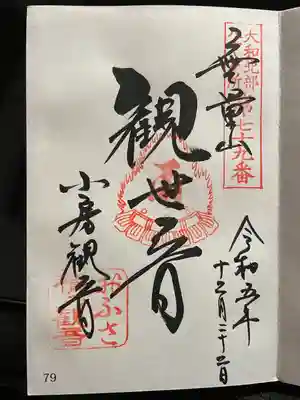 大和北部
第七十九番
無量山
観世音
小房観音
おふさ
観音
令和五年
十二月二十二日
79